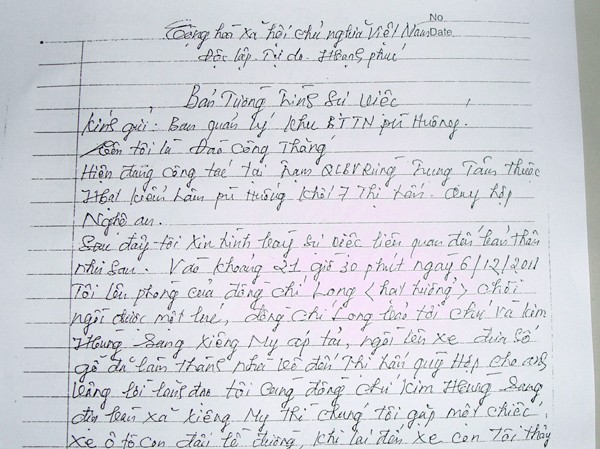 No
Cộng hoà xã hội chủ nghĩa Việt Nam Date
Độc lập. Tự do. Hạnh phúc
Bản Tường Trình Sự việc
Kính gửi: Ban quản lý khu BTTN pù Huống.
Tên tôi là Đào Công Thắng
Hiện đang công tác tại Trạm QLBVRừng Trung Tâm thuộc
Hạt kiểm lâm pù Huống khối 7 Thị trấn. Quỳ hợp
Nghệ an.
Sau đây tôi xin trình bày sự việc liên quan đến bản thân
như sau. Vào khoảng 21 giờ 30 phút ngày 6/12/2011
Tôi lên phòng của đồng chí Long <hạt trưởng> chơi
ngồi được một lúc, đồng chí Long bảo tôi chú và kim
Hưng sang xiêng My áp tải, ngồi lên xe đưa số
gỗ đã làm thành nhà về đến Thị trấn quỳ Hợp cho anh
vâng lời lãnh đạo tôi cùng đồng chí kim Hưng sang,
đến xã xiêng My Thì chúng tôi gặp một chiếc
xe ô tô con đậu lề đường, khi lại đến xe con Tôi thấy